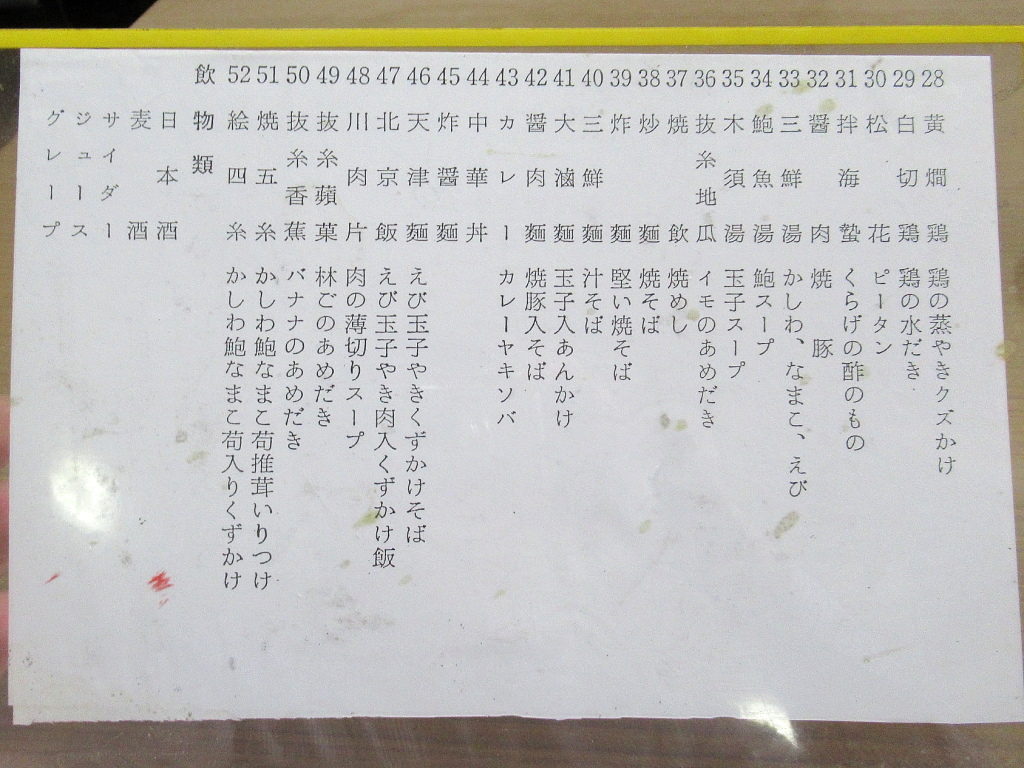 28 黄燜鶏 鶏の蒸やきクズかけ
29 白切鶏 鶏の水だき
30 松花 ピータン
31 拌海蟄 くらげの酢のもの
32 醤肉 焼豚
33 三鮮湯 かしわ、なまこ、えび
34 鮑魚湯 鮑スープ
35 木須湯 玉子スープ
36 抜糸地瓜 イモのあめだき
37 焼飲 焼めし
38 炒麵 焼そば
39 炸麵 堅い焼そば
40 三鮮麵 汁そば
41 大滷麵 玉子入あんかけ
42 醤肉麵 焼豚入そば
43 カレー カレーヤキソバ
44 中華丼
45 炸醤麵
46 天津麵 えび玉子やきくずかけそば
47 北京飯 えび玉子やき肉入くずかけ飯
48 川肉片 肉の薄切りスープ
49 抜糸蘋菓 林ごのあめだき
50 抜糸香蕉 バナナのあめだき
51 焼五糸 かしわ鮑なまこ苟推茸いりつけ
52 絵四糸 かしわ鮑なまこ苟入りくずかけ
飲物類
日本酒
麦酒
サイダー
ジュース
グレープ